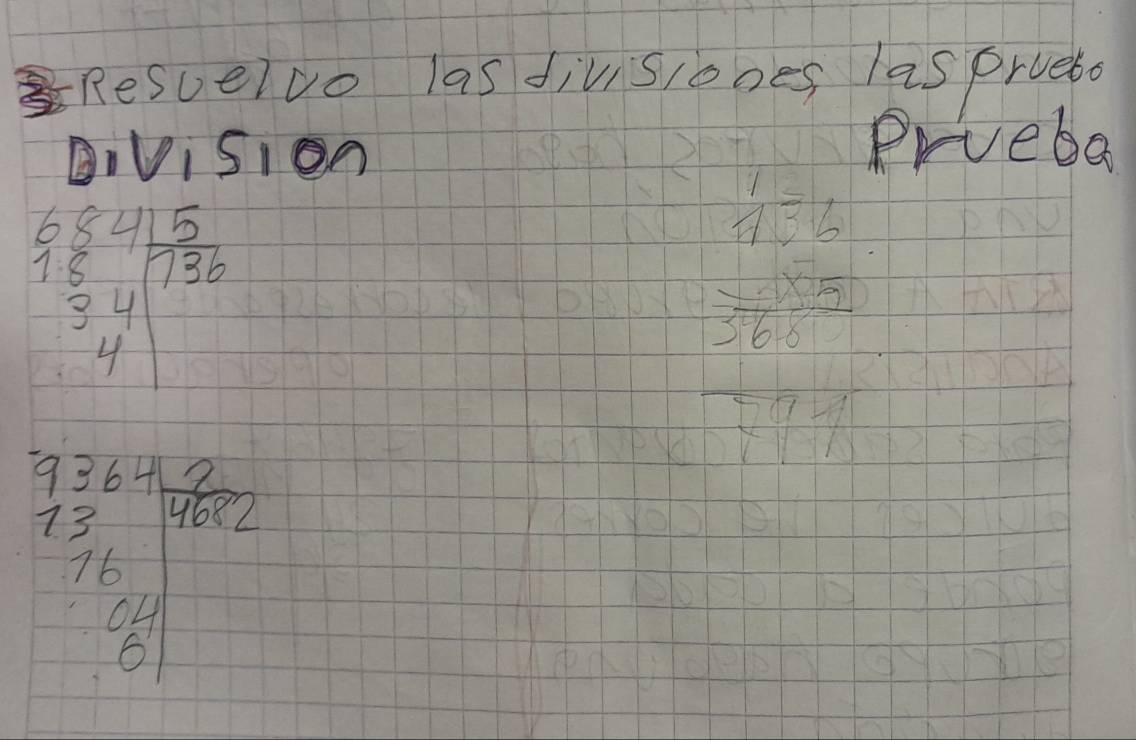 3- Resuelvo las divisiones, las pruebo
DiViSion Prueba
684 5
18 136
34
4
1
136
x5
368
791
9364 2
13 4682
16
04
0